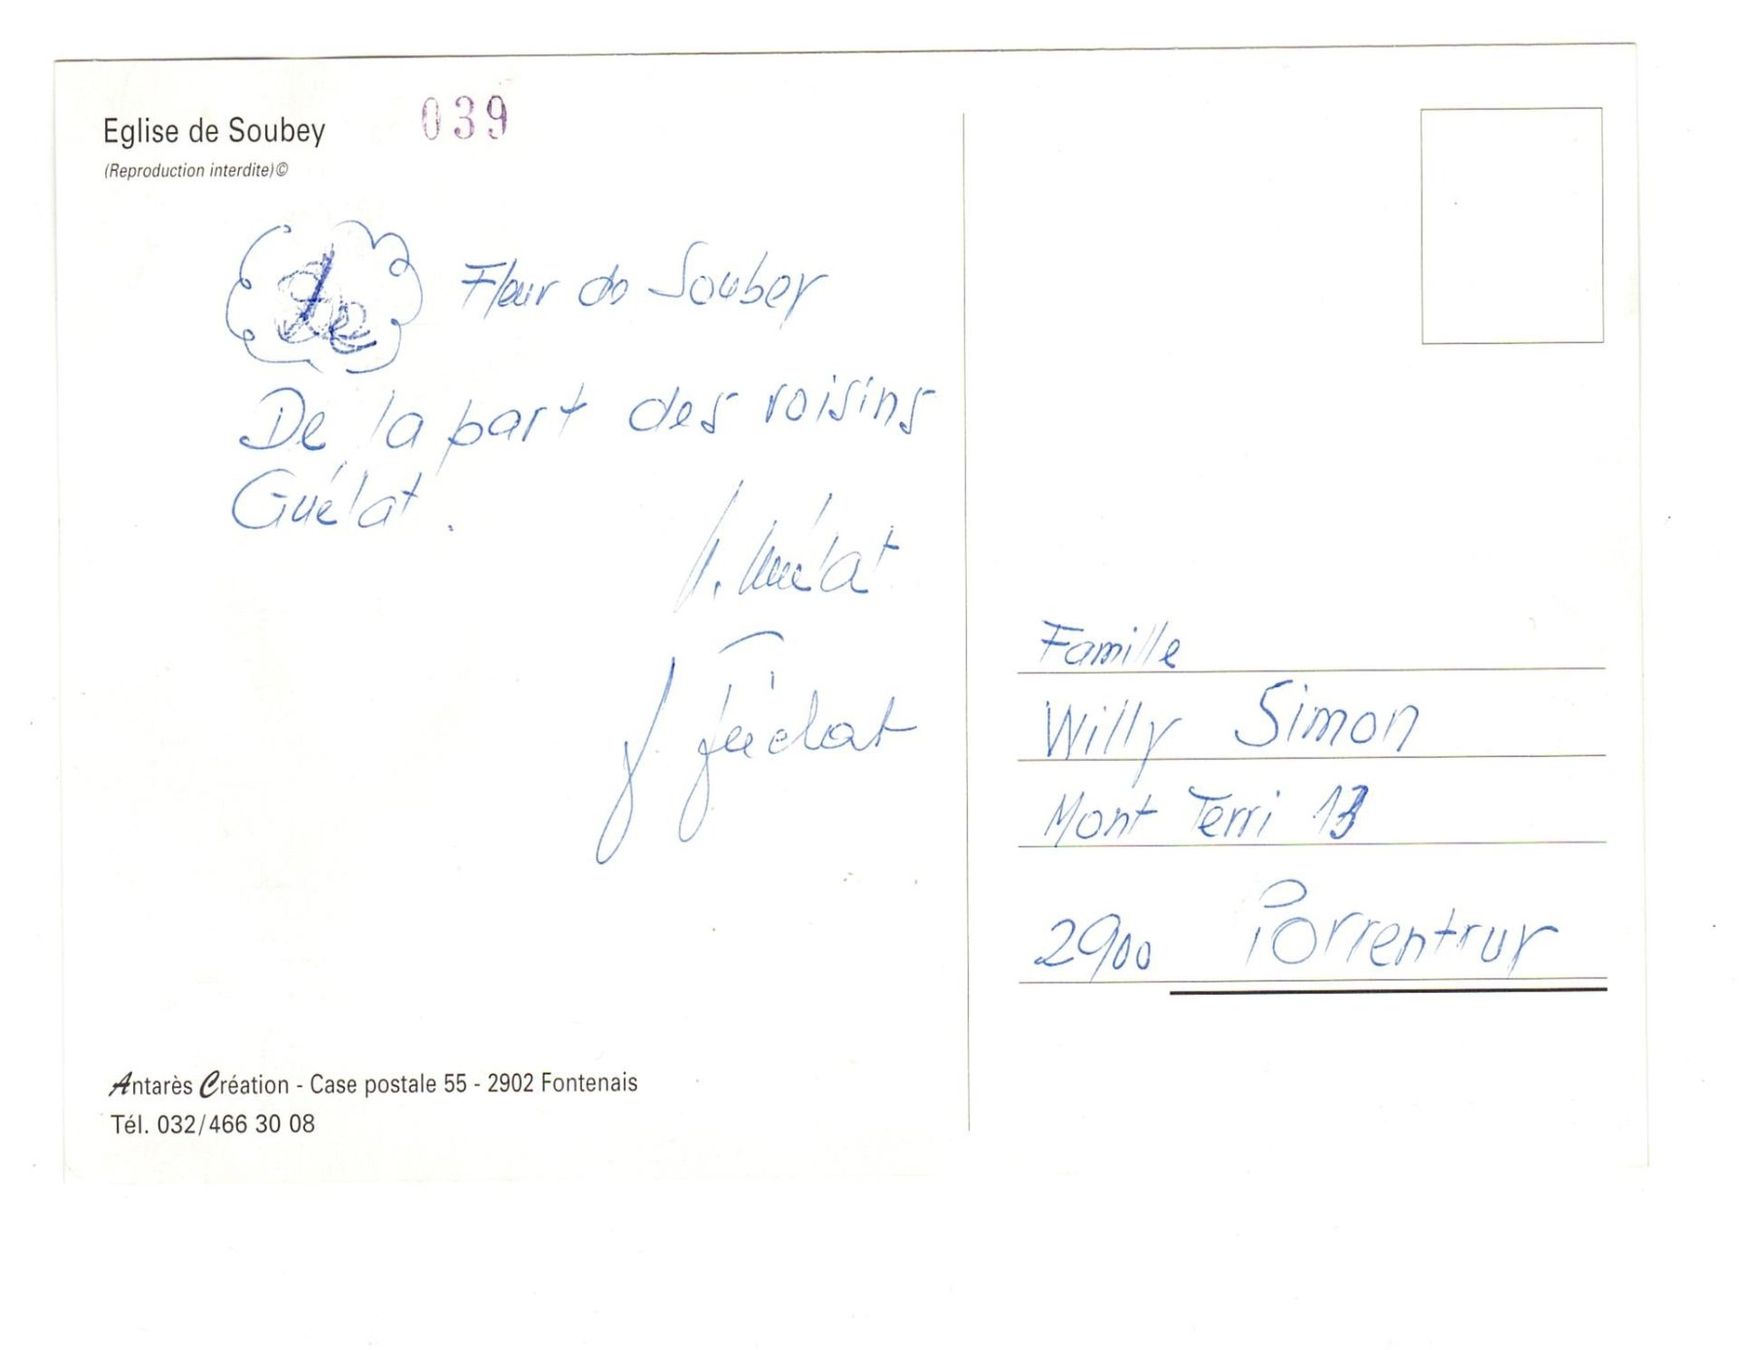 Eglise de Soubey 039
(Reproduction interdite)©
Fleur de Soubey
De la part des voisins
Guélat.
Guélat
J. Guélat
Famille
Willy Simon
Mont Terri 13
2900 Porrentruy
Antarès Création - Case postale 55 - 2902 Fontenais
Tél. 032/466 30 08